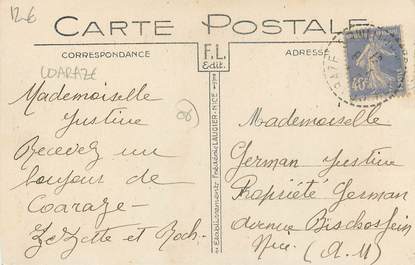 12€
CARTE POSTALE
CORRESPONDANCE
F.L.
Edit.
ADRESSE
COARAZE
Mademoiselle
Justine
Recevez un
bonjour de
Coaraze-
ZeZette et Roch-
(06)
Etablissements Frédéric LAUGIER-NICE
40c
Mademoiselle
German Justine
Propriété German
avenue Bischosfein
Nice (A.M)